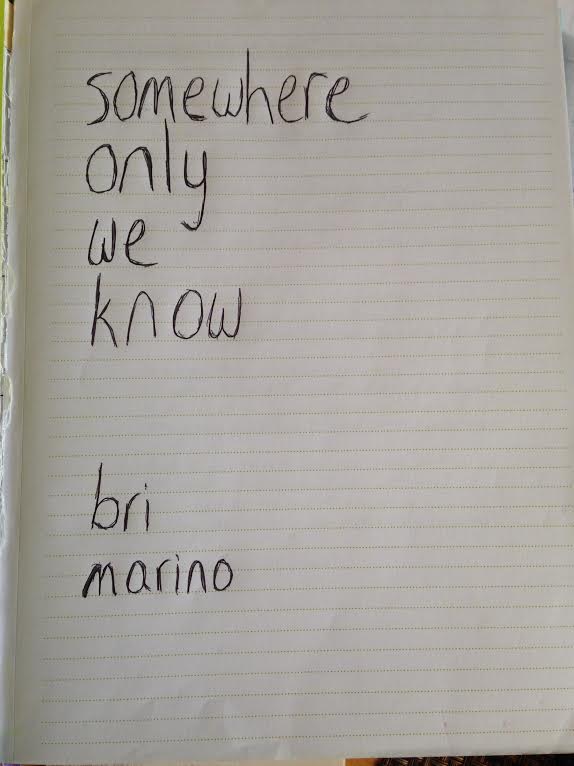 somewhere
only
we
know
bri
marino